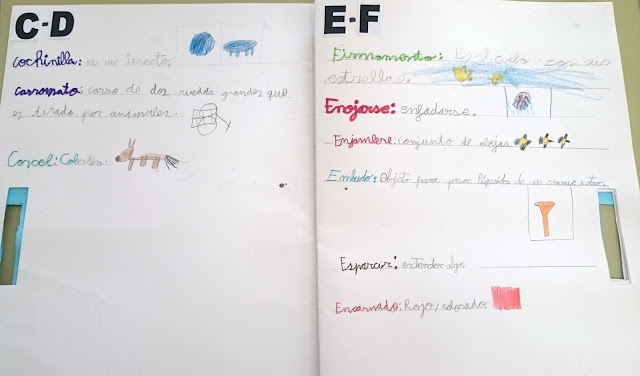 C-D
cochinilla: es un insecto.
carromato: carro de dos ruedas grandes que
es tirado por animales.
Corcel: Caballo.
E-F
Firmamento: Es el cielo con sus
estrellas.
Enojarse: enfadarse.
Enjambre: conjunto de abejas
Embudo: Objeto para pasar líquidos de un
Esparcir: extender algo.
Encarnado: Rojo, colorado.